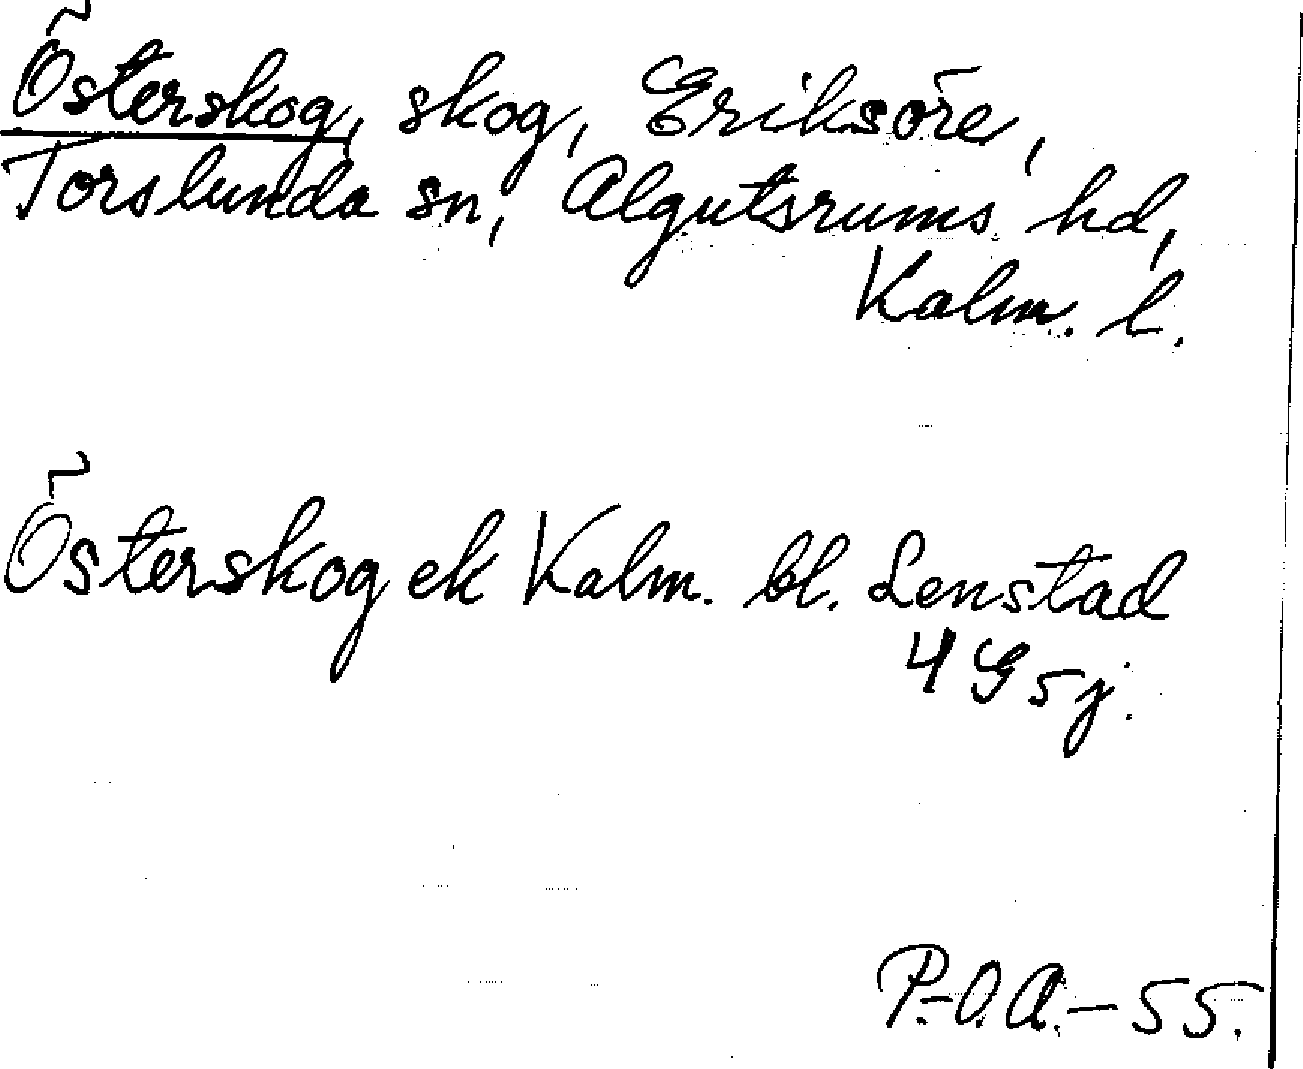 Österskog, skog, Eriksöre,
Torslunda sn, Algutsrums hd,
Kalm. l.
Österskog ek Kalm. bl. Lenstad
4 G 5 j.
P.-O.A.-55.